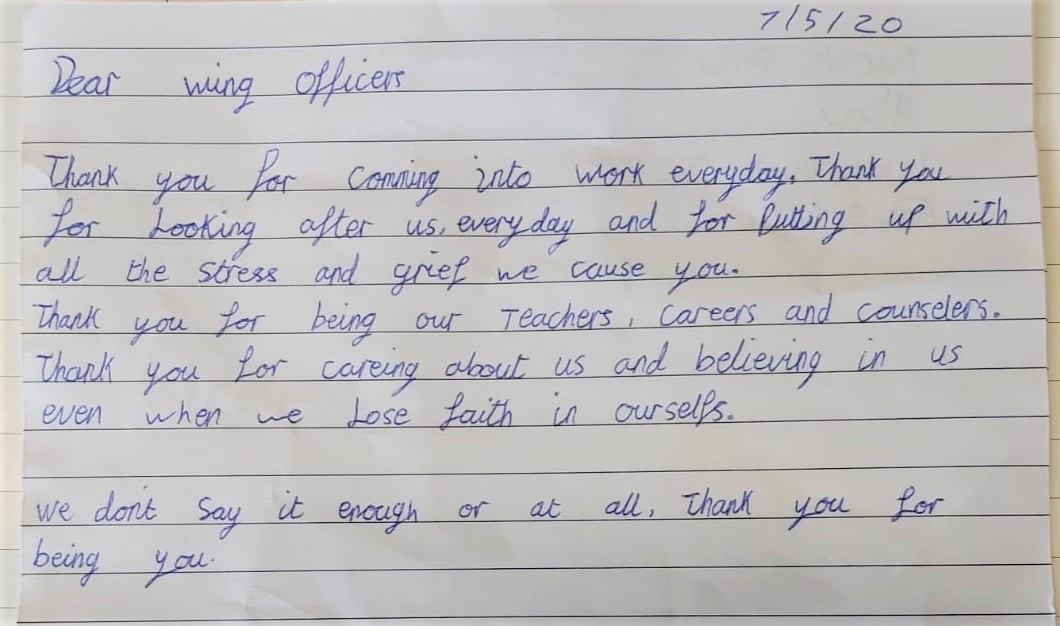 7/5/20
Dear wing officers
Thank you for comming into work everyday. Thank you
for Looking after us, everyday and for Putting up with
all the stress and grief we cause you.
Thank you for being our Teachers, careers and counselers.
Thank you for careing about us and believing in us
even when we Lose faith in ourselfs.
We don't Say it enough or at all, Thank you for
being you.